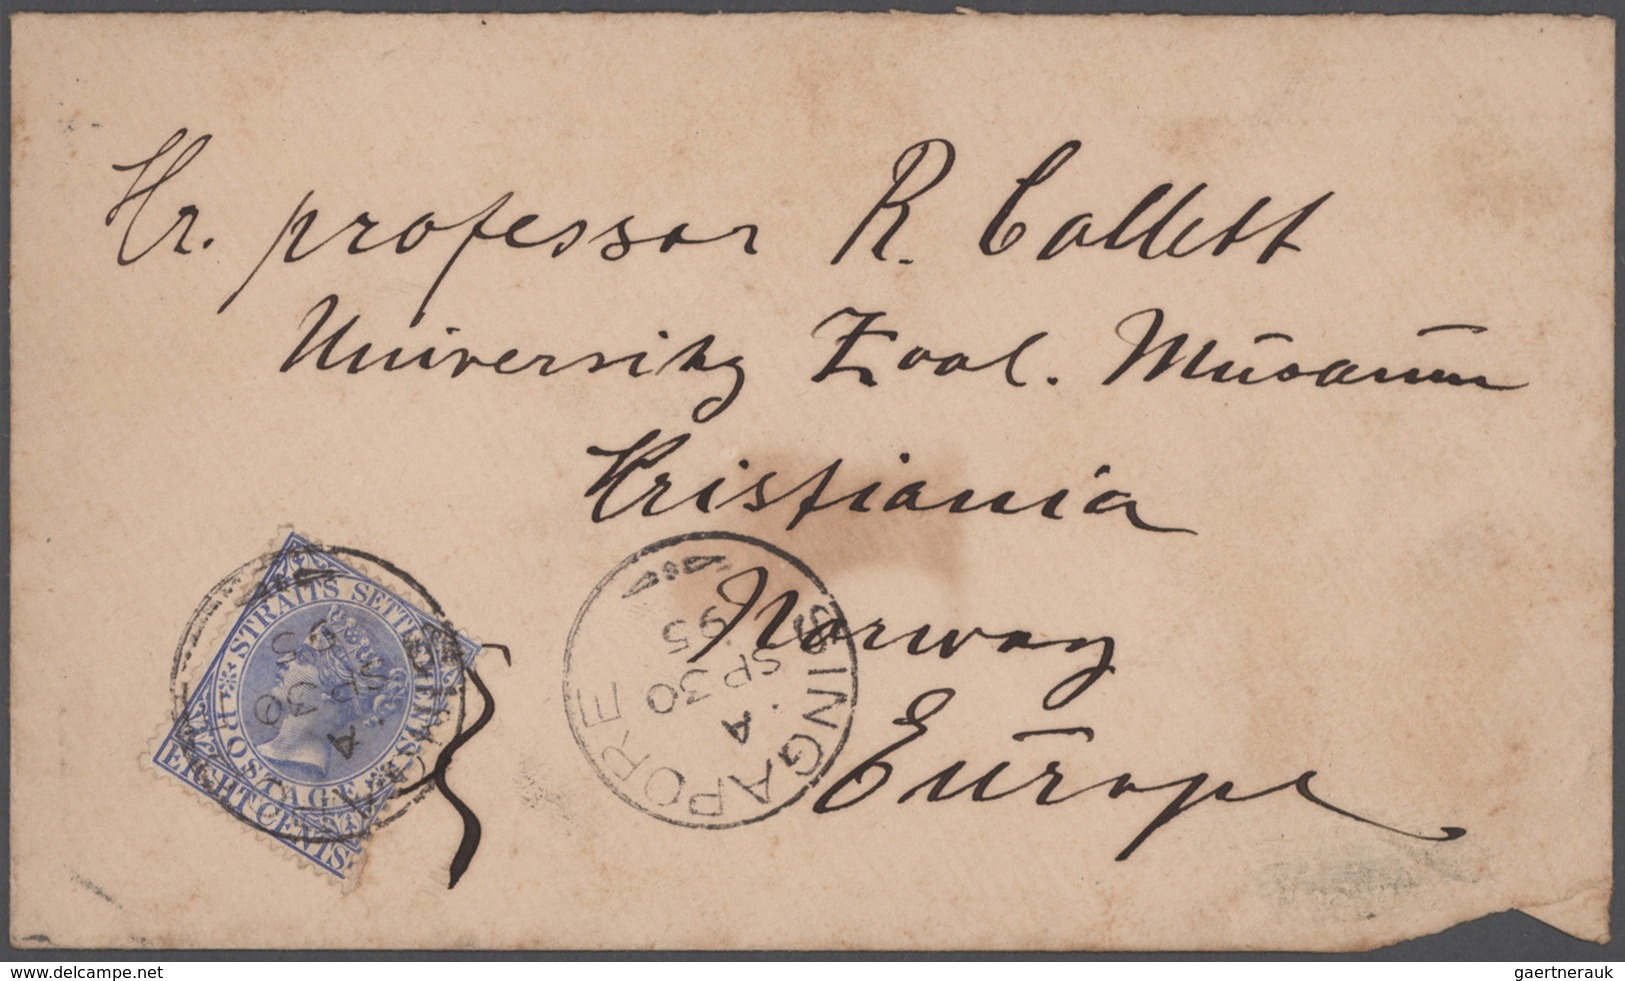 Hr. professor R. Collett
University Zool. Museum
Kristiania
Norway
Europe
STRAITS SETTLEMENTS
POSTAGE
EIGHT CENTS.
A
SP 30
95
SINGAPORE
A
SP 30
95
www.delcampe.net
gaertnerauk